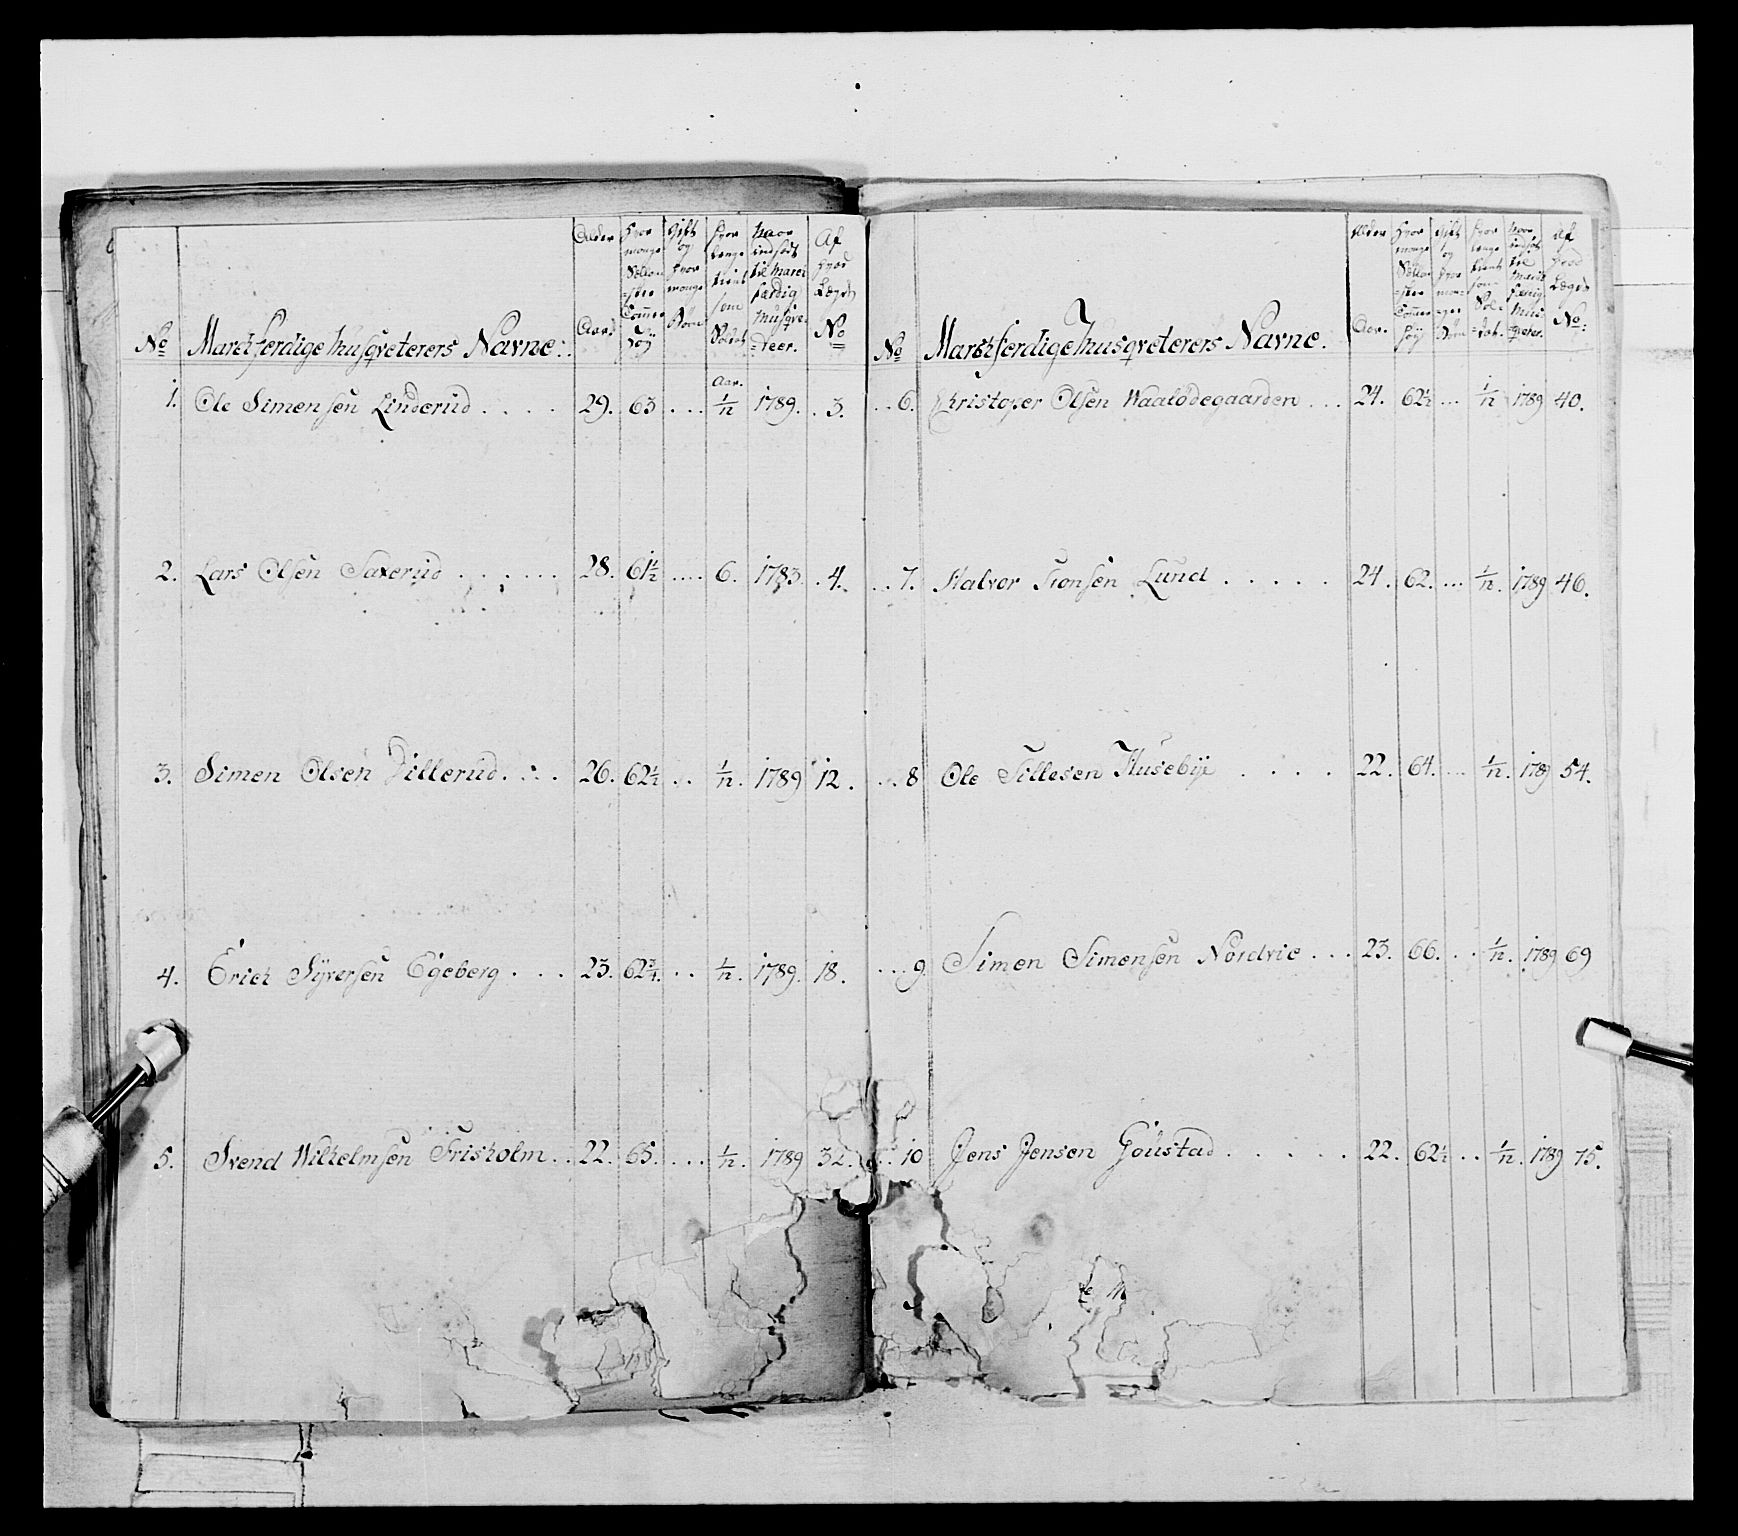 No
Marchferdige Husqveterers Navne:
Alder Aar.
Hvor mange Sollandske Tomer høy
Gift og hvor mange Børn
Hvor lenge tient som Soldat
Naar indsadt til March færdig Musqveteer.
Af hvad Lægds No
Aar.
1. Ole Simensen Linderud . . . . 29. 63 . . . 1/12 1789. . 3.
2. Lars Olsen Saxerud . . . . . . 28. 61 1/2 . . . . 6. 1783. . 4.
3. Simen Olsen Dillerud. . . . 26. 62 1/2 . . 1/12. 1789 12.
4. Erich Syversen Egeberg . . . 23. 62 3/4. . . 1/12. 1789. 18.
5. Svend Wilhelmsen Frisholm . . 22. 65. . . . 1/12. 1789 32.
No
Marchferdige Husqveterers Navne.
Alder Aar.
Hvor mange Tomer høy
Gift og hvor mange Børn
Hvor lenge tient som Soldat.
Naar indsat til March færdig Musqveteer.
Af hvad Lægds No:
. . 6. Christoper Olsen Waalødegaarden . . . 24. 62 1/2 . . . 1/12 1789 40.
. . 7. Halvor Jronsen Lund . . . . . 24. 62. . . . 1/12. 1789 46.
. . . 8 Ole Tillesen Husebye . . . . 22. 64. . . . 1/12. 1789 54.
. . . 9 Simen Simensen Nordvie . . . 23. 66. . . 1/12. 1789 69
. . 10 Jens Jensen Goustad . . . . . 22. 62 1/2 . . 1/12. 1789 75.